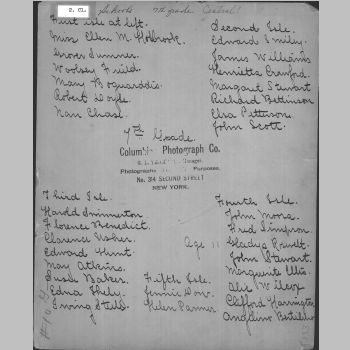 Schools 7th grade Central
First isle at left.
Miss Ellen M. Holbrook.
Grover Sumner.
Woolsey Field.
Mary Boguarddis.
Robert Doyle.
Nan Chase.
Second Isle.
Edward Emily.
James Williams
Henrietta Crawford.
Margaret Stewart
Richard Bettinson
Elsa Petterson.
John Scott.
7th Grade.
Photograph Co.
Photographs Purposes.
No. 314 SECOND STREET
NEW YORK.
Third Isle.
Harold Simmerton
Florence Benedict.
Clarence Usher.
Edward Hunt.
May Atkins.
Susie Baker.
Edna
Irving
Age 11
Fifth Isle.
Jennie Dow.
Helen Panner
Fourth Isle.
John Mora.
Fred Simpson.
Gladys
John Stewart.
Marguerite Ellis.
Alie Wilcox
Clifford Harrington
Angelino